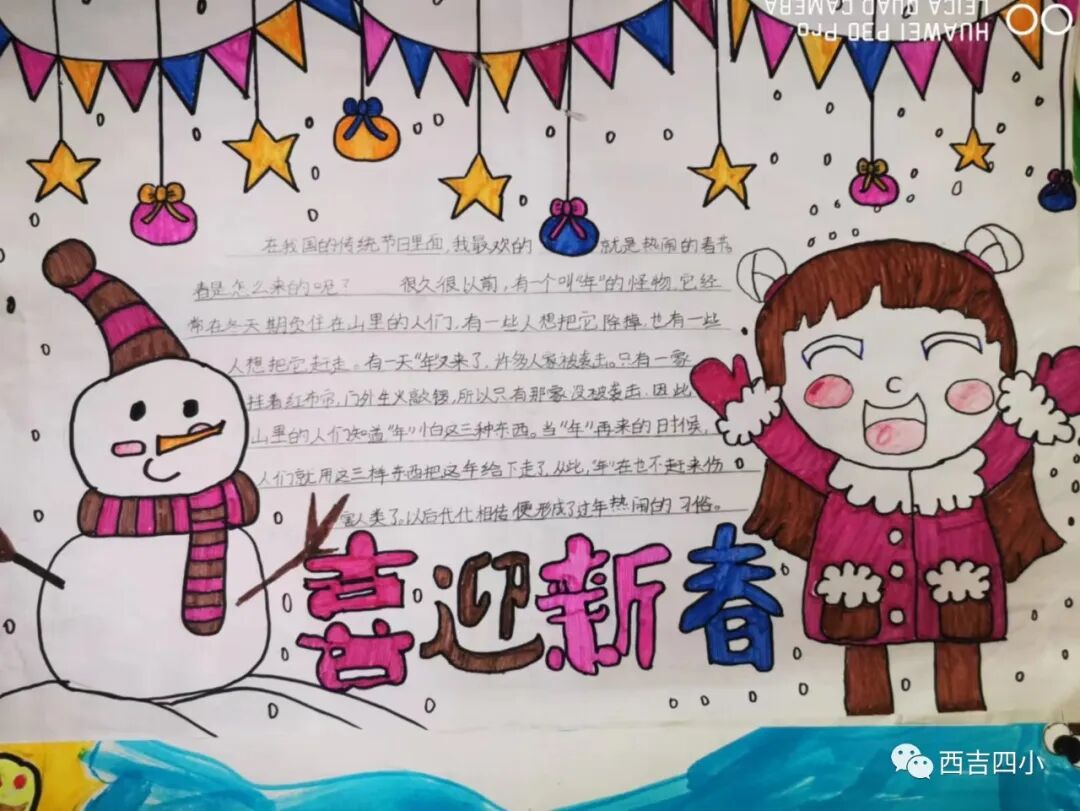 HUAWEI P30 Pro
LEICA QUAD CAMERA
在我国的传统节日里面,我最欢的 就是热闹的春节。
春是怎么来的呢? 很久很以前,有一个叫“年”的怪物,它经
常在冬天期负住在山里的人们,有一些人想把它除掉,也有一些
人想把它赶走。有一天“年”又来了,许多人家被袭击。只有一家
挂着红布帘,门外生火敲锣,所以只有那家没被袭击,因此,
山里的人们知道“年”怕这三种东西。当“年”再来的日时候,
人们就用这三样东西把这年给下走了,从此,“年”在也不赶来伤
害人类了。以后代代相传便形成了过年热闹的习俗。
喜迎新春
西吉四小